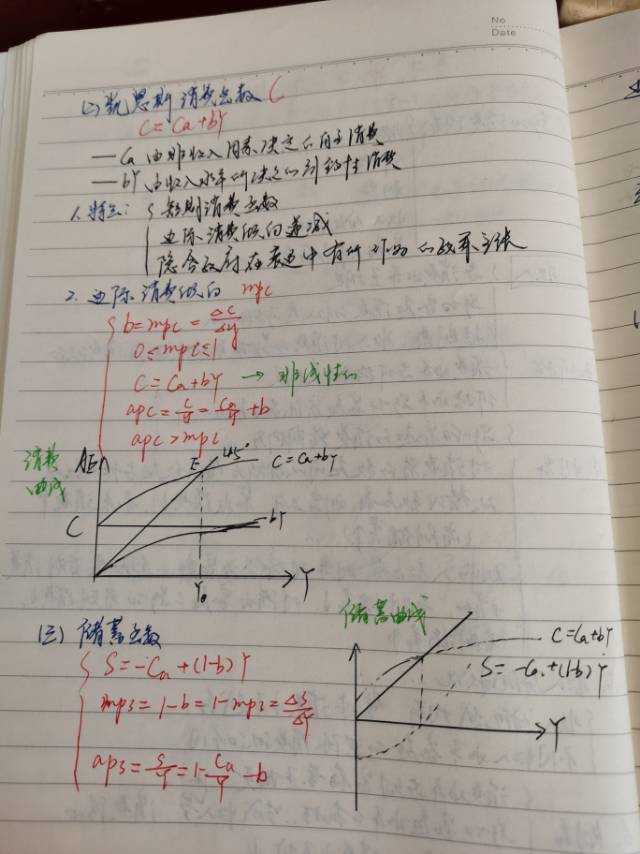 No
Date
(二)凯恩斯消费函数 C
C=Ca+bY
—Ca 由非收入因素决定的自主消费
—bY 由收入水平所决定的引致性消费
1、特点: 短期消费函数
边际消费倾向递减
隐含政府在表边中有所作为的政策主张
2. 边际消费倾向 mpc
b=mpc=ΔC/Δy
0≤mpc≤1
C=Ca+bY → 非线性的
apc=C/Y=Ca/Y+b
apc>mpc
消费曲线
AE
E
45°
C=Ca+bY
C
bY
Y₀
Y
(三) 储蓄函数
S=-Ca+(1-b)Y
mps=1-b=1-mps=ΔS/ΔY
aps=S/Y=1-Ca/Y-b
储蓄曲线
C=Ca+bY
S=-Ca+(1-b)Y
Y